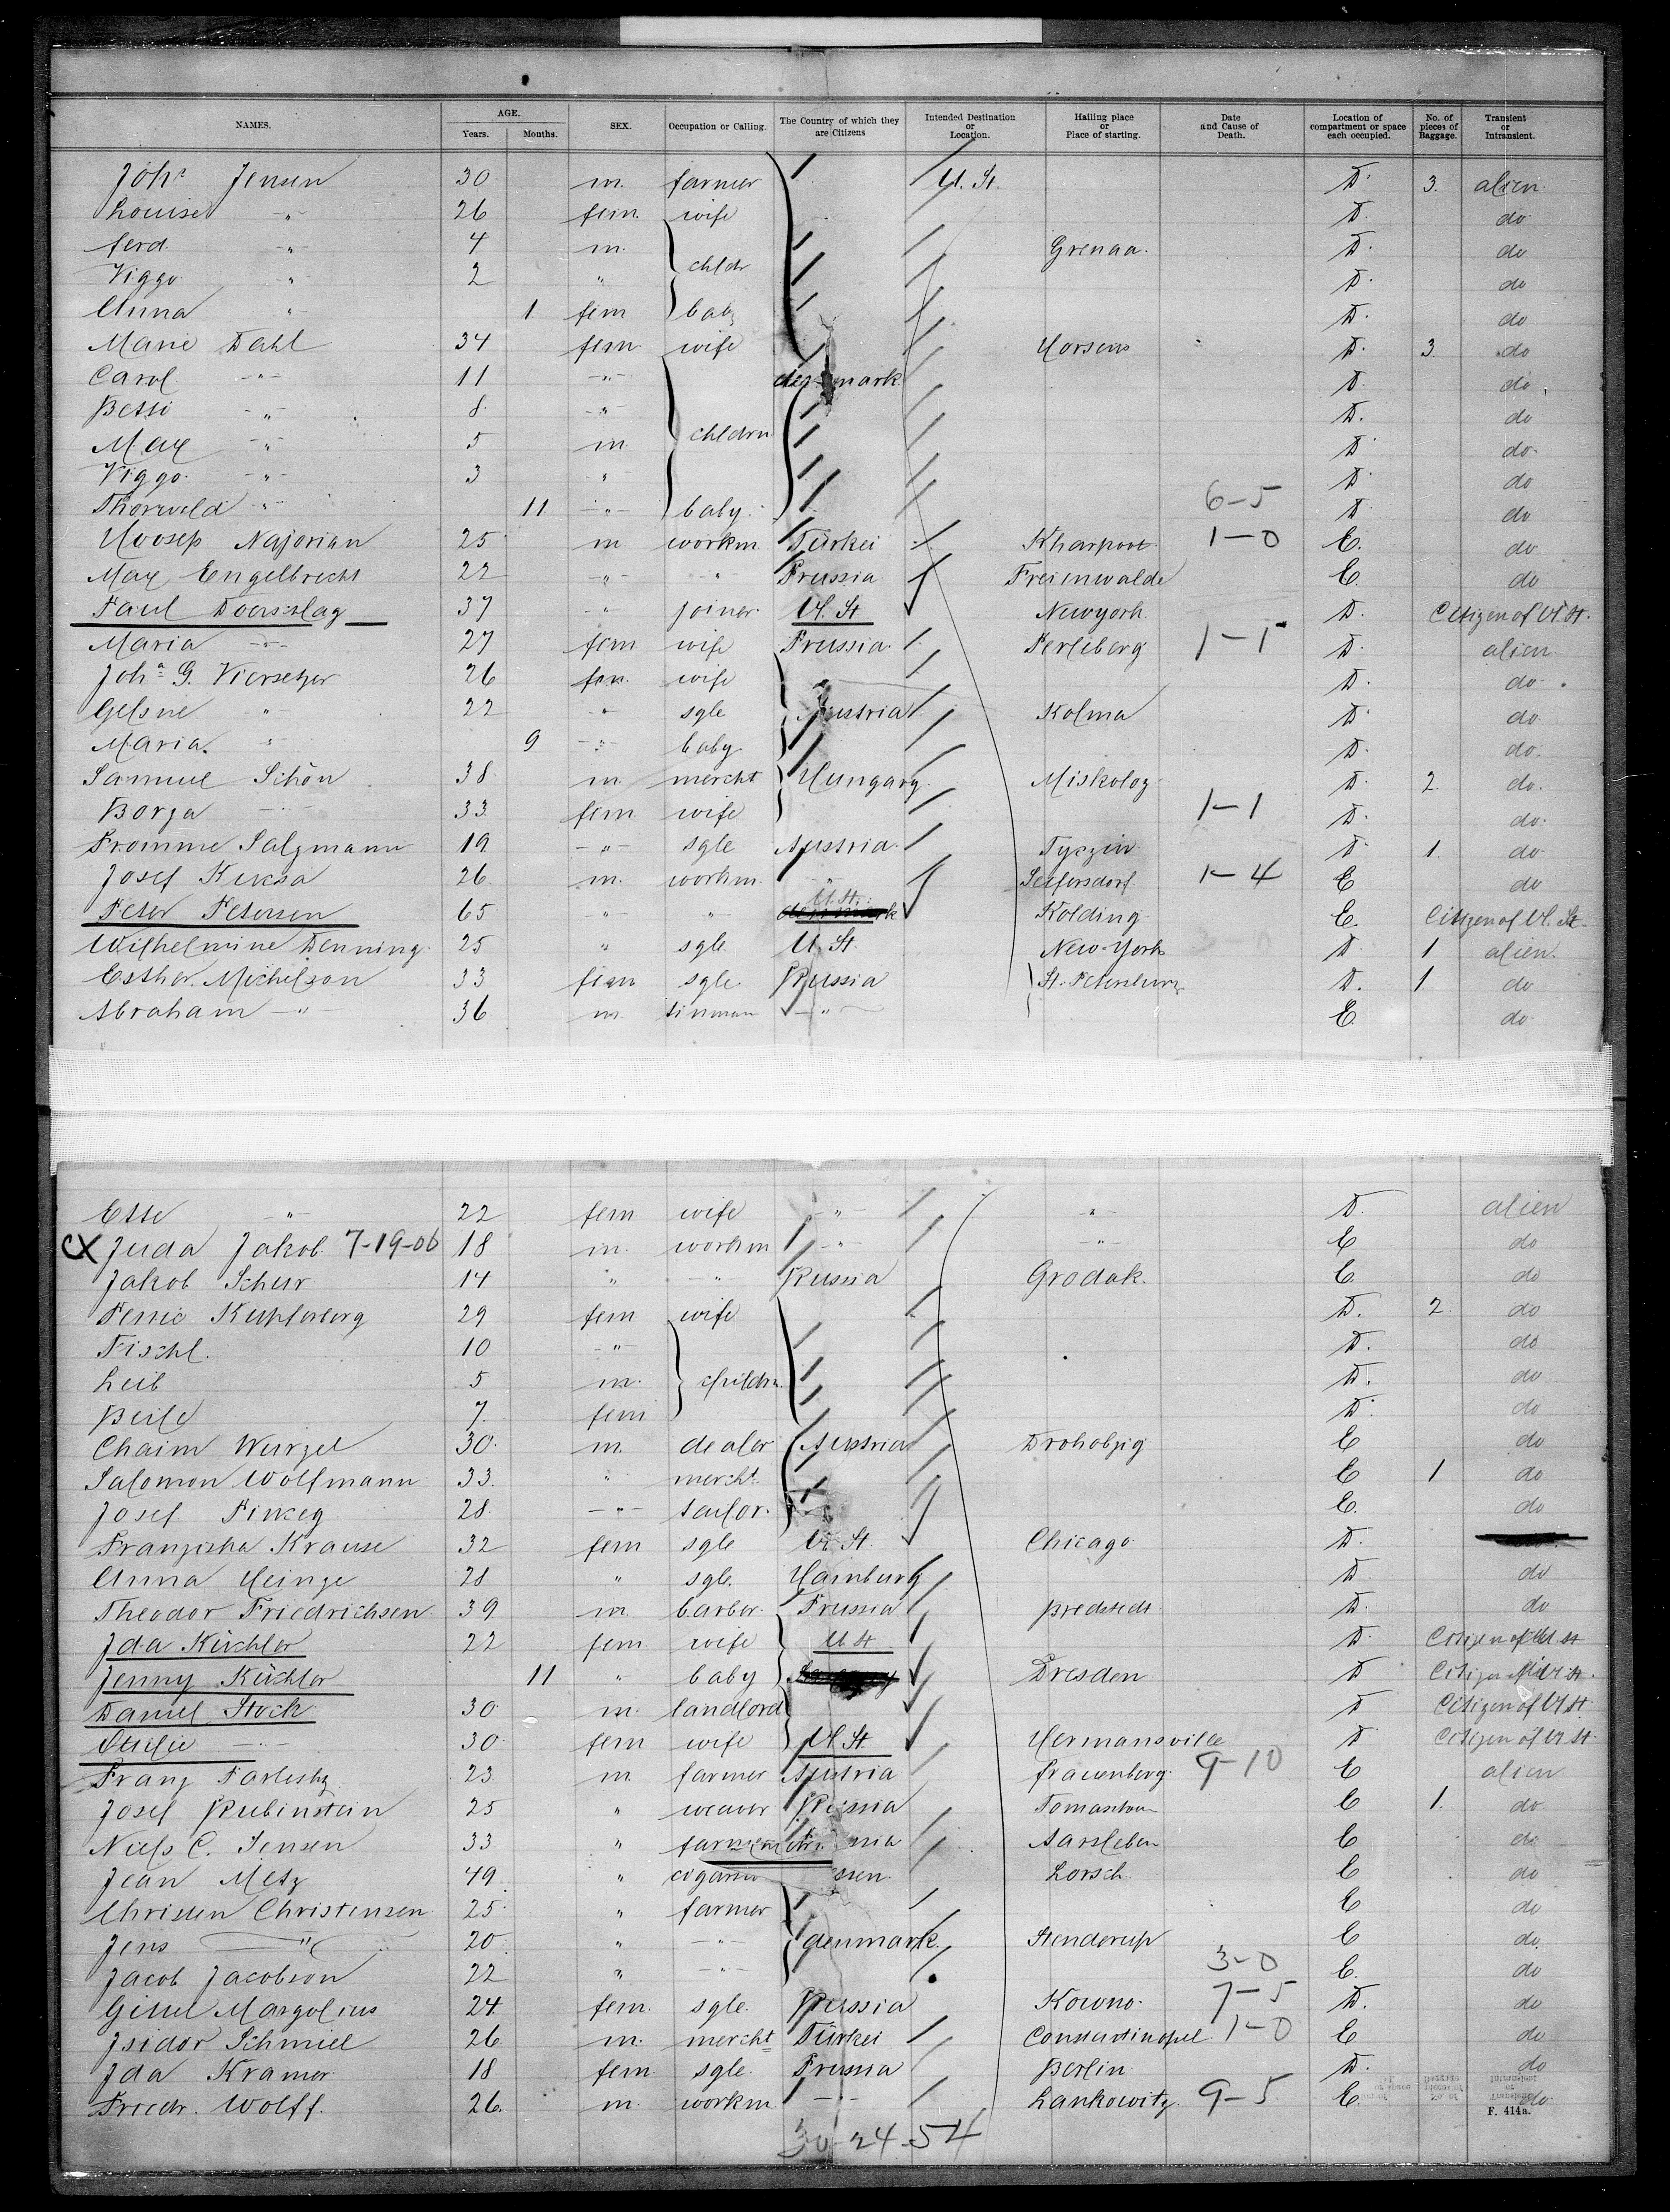 NAMES. AGE. Years. Months. SEX. Occupation or Calling. The Country of which they are Citizens Intended Destination or Location. Hailing place or Place of starting. Date and Cause of Death. Location of compartment or space each occupied. No. of pieces of Baggage. Transient or Intransient.
Joh. Jensen 30 m. farmer U. St. D. 3. alien
Louise " 26 fem. wife D. do
ferd. " 4 m. childr Grenaa. D. do
Viggo " 2 " D. do
Anna " 1 fem baby D. do
Marie Dahl 34 fem wife Horsens D. 3. do
Carol " 11 " denmark D. do
Betsi " 8 " D. do
Max " 5 m. chldrn D. do
Viggo " 3 " D. do
Thorwald " 11 " baby. 6-5 D. do
Hoosep Najorian 25 m workm. Türkei Kharpoot 1-0 E. do
Max Engelbrecht 22 " " Prussia Freienwalde E. do
Paul Doerschlag 37 " joiner U. St Newyork D. Citizen of U. St.
Maria " 27 fem wife Prussia Perleberg 1-1 D. alien
Joh. G. Viersetzer 26 fem. wife D. do
Gesine " 22 " sgle Austria Kolma D. do
Maria " 9 " baby D. do
Samuel Schön 38 m. mercht Hungary Miskolcz D. 2. do.
Borza " 33 fem wife 1-1 D. do.
Fromme Salzmann 19 " sgle Austria Tyczin D. 1. do
Josef Kuksa 26 m. workm. Seifersdorf 1-4 E. do
Peter Petersen 65 " " U. St. denmark Kolding E. Citizen of U. St.
Wilhelmine Denning 25 " sgle U. St. New-York D. 1 alien.
Esther Michelson 33 fem sgle. Russia St. Petersburg D. 1 do
Abraham " 36 m. tinman " E. do
Esse " 22 fem wife " " D. alien
CX Juda Jakob 7-19-06 18 m. workm " " E do
Jakob Schur 14 " " Russia Grodak E. do
Pessie Kupferberg 29 fem wife D. 2. do
Fischl. 10 " D. do
Leib 5 m. childrn. D. do
Beile 7. fem D. do
Chaim Wurzel 30. m. dealer Austria Drohobzig E do
Salomon Wolfmann 33. " mercht E 1 do
Josef Pinkey 28. " tailor. E. do
Franziska Krause 32 fem sgle U. St. Chicago D.
Anna Heinze 28 " sgle. Hamburg D. do
Theodor Friedrichsen 39 m. barber. Prussia predstedt D. do
Ida Küchler 22 fem wife U St D. Citizen of U. St
Jenny Küchler 11 " baby Dresden D Citizen of U. St.
Daniel Stock 30. m. landlord D Citizen of U St
" 30. fem wife U. St Hermansville D Citizen of U St.
Franz 23 m. farmer Austria frauenberg. 9-10 E alien
Josef Rubinstein 25 " weaver Russia Tomaschow E 1. do
Niels C. Jensen 33 " Aarsleben E do
Jean Metz 49 " Lorsch. E do
Christen Christensen 25 " farmer E do
Jens " 20 " " denmark Stenderup E do
Jacob Jacobson 22 " " 3-0 E. do
Gissel Margolius 24 fem. sgle. Russia Kowno. 7-5 D. do
Isidor Schmiel 26 m. mercht Türkei Constantinopel 1-0 E do
Ida Kramer 18 fem. sgle. Prussia Berlin D. do
Friedr. Wolff. 26. m. workm " Lankowitz 9-5 E. do
F. 414a.
30-24 54